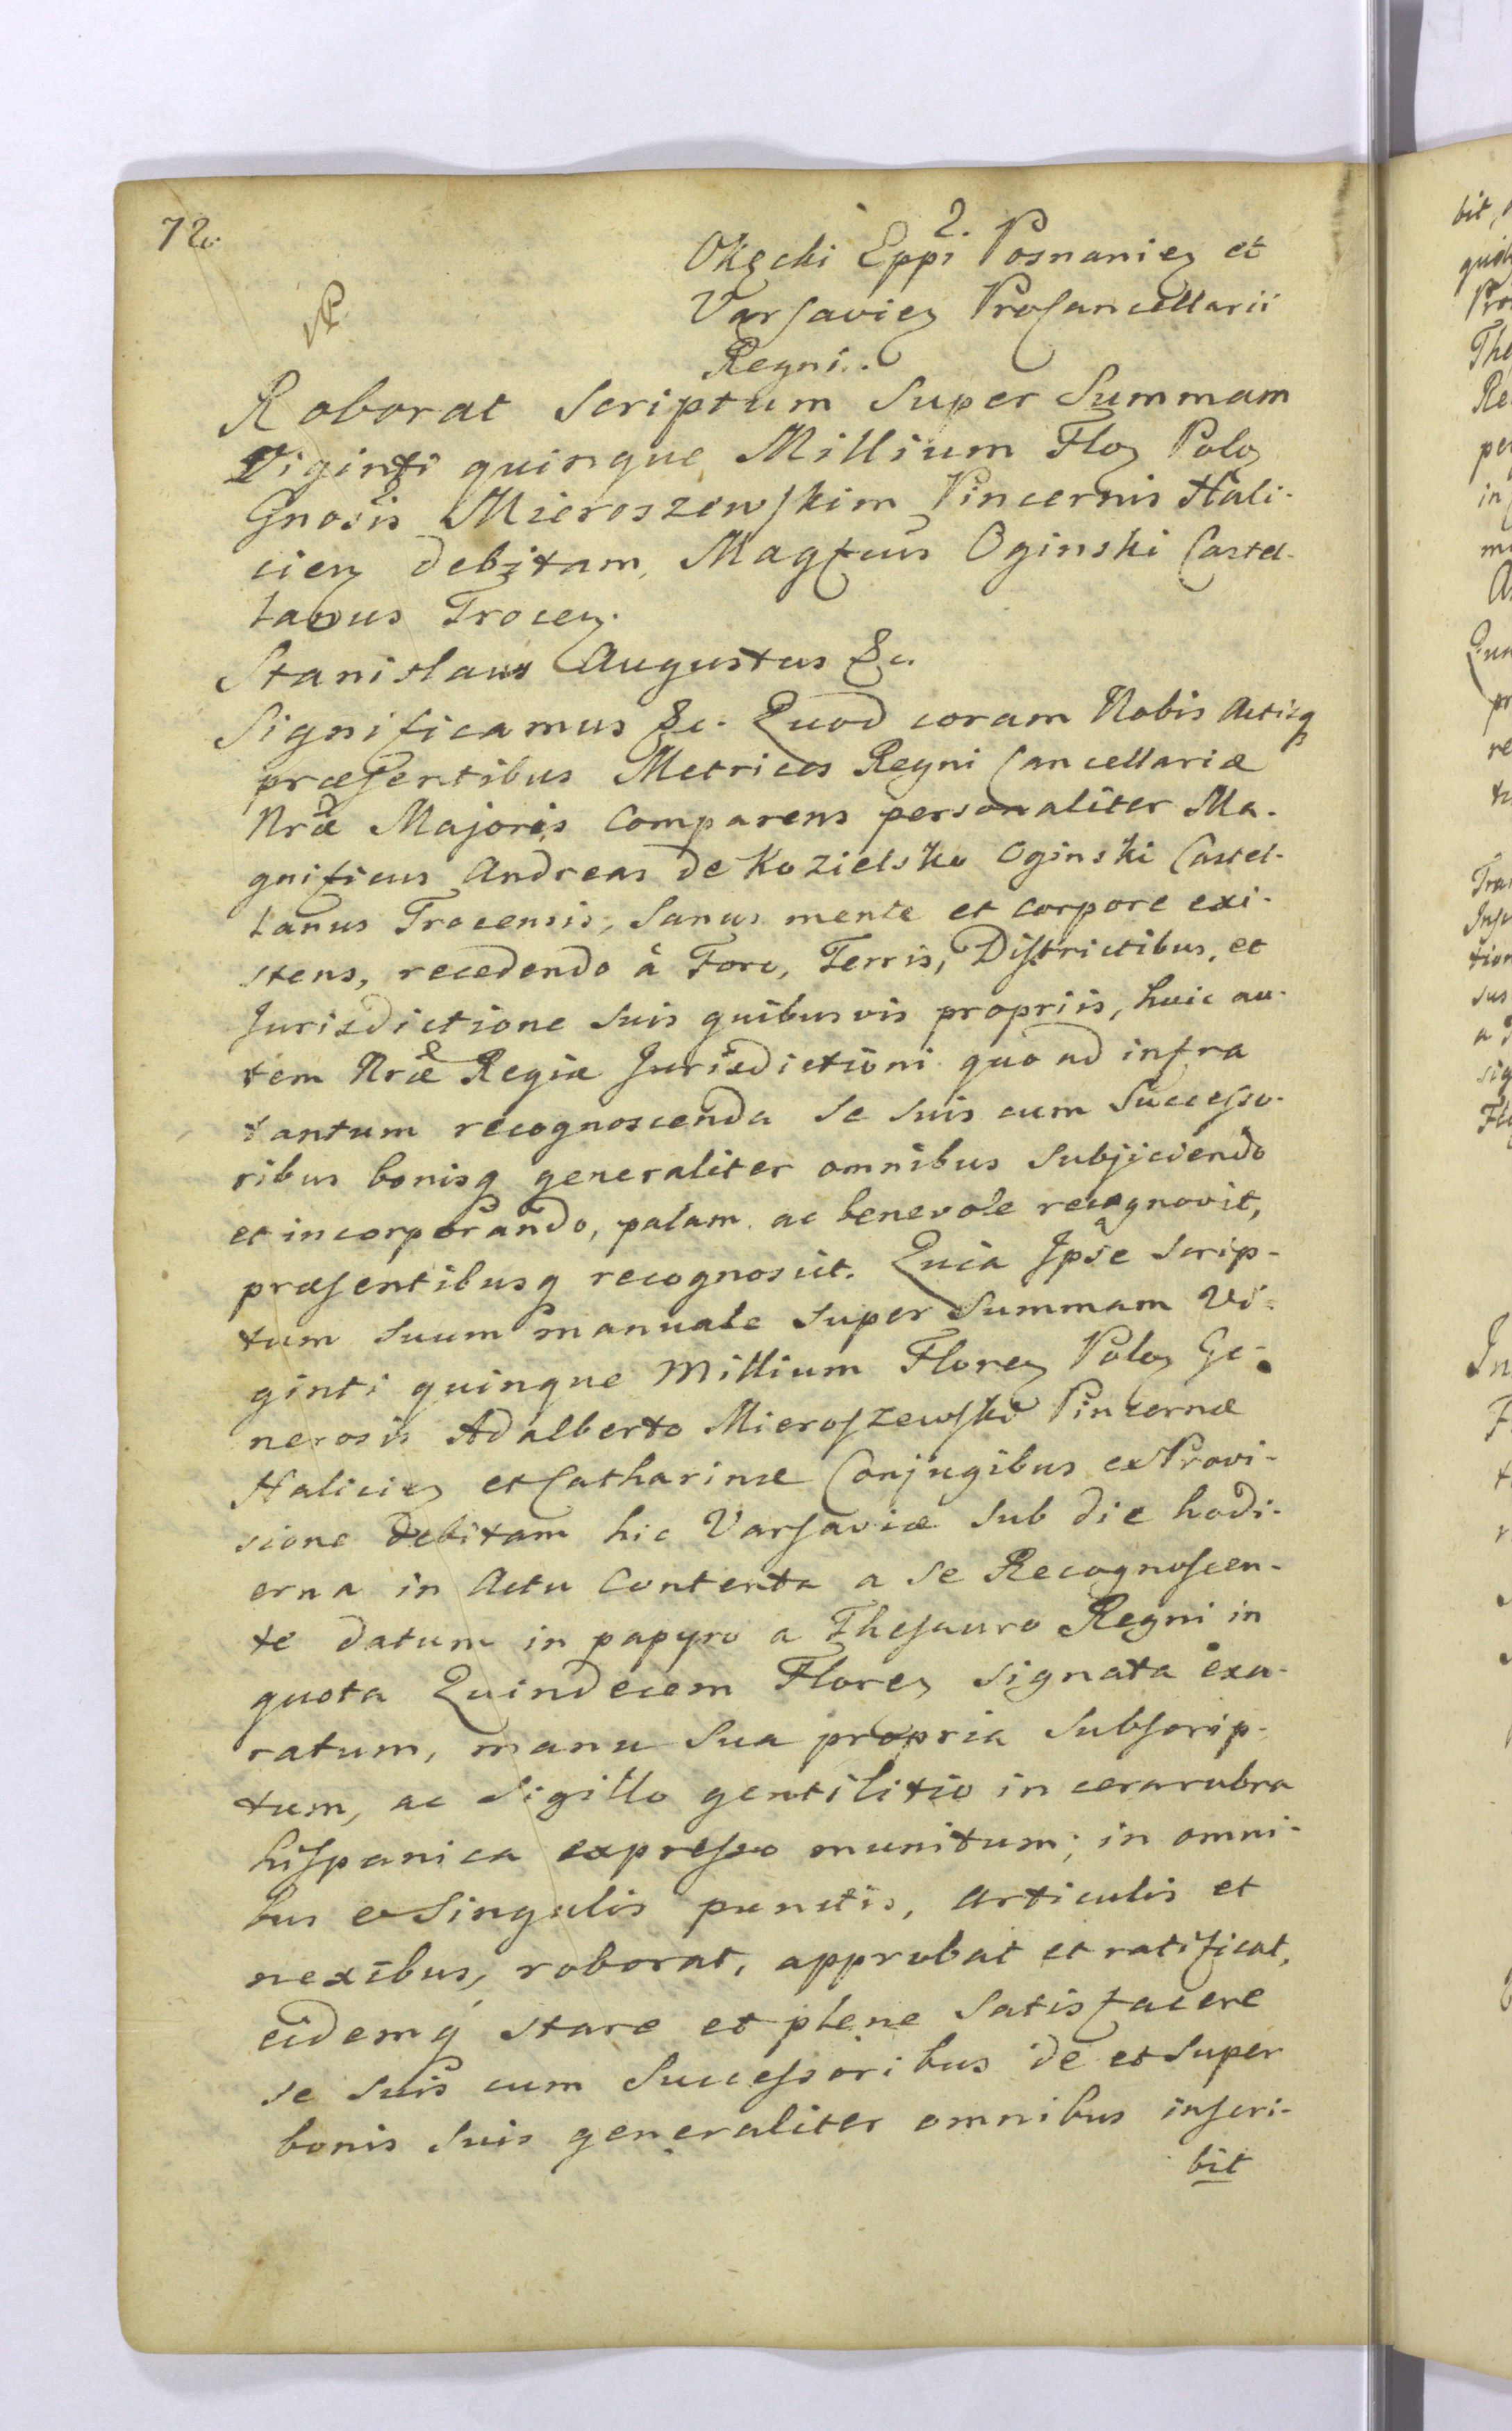 72.
Okęcki Eppi Posnanień et
Varsavień ProCancellarii
Regni.
Roborat Scriptum Super Summam
Viginti quinque Millium Floɀ Poloɀ
Gnosis Mieroszewskim Pincernis Hali-
cień debitam, Magfcus Oginski Castel-
lanus Troceń.
Stanislaus Augustus &c.
Significamus &c. Quod coram Nobis Actisq
præsentibus Metrices Regni Cancellariæ
Nræ Majoris Comparens personaliter Ma-
gnificus Andreas de Kozielsko Oginski Castel-
lanus Trocensis, Sanus mente et corpore exi-
stens, recedendo à Foro, Terris, Districtibus, et
Jurisdictione Suis quibusvis propriis, huic au-
tem Nræ Regiæ Jurisdictioni quo ad infra
tantum recognoscenda Se Suis cum Successo-
ribus bonisq generaliter omnibus Subjiciendo
et incorporando, palam ac benevole recognovit,
præsentibusq recognoscit. Quia Ipse Scrip-
tum Suum manuale Super Summam Vi-
ginti quinque Millium Floreɀ Poloɀ Ge-
nerosis Adalberto Mieroszewski Pincernæ
Halicień et Catharinæ Conjugibus ex Provi-
sione debitam hic Varsaviæ Sub die hodi-
erna in Actu Contenta a Se Recognoscen-
te datum in papyro a Thesauro Regni in
quota Quindecem Floreɀ Signata exa-
ratum, manu Sua propria Subscrip-
tum, ac Sigillo gentilitio in cera rubra
hispanica expresso munitum; in omni-
bus et Singulis punctis, articulis et
nexibus, roborat, approbat et ratificat,
eidemq stare et plene Satisfacere
se Suis cum Successoribus de et Super
bonis Suis generaliter omnibus inscri-
bit